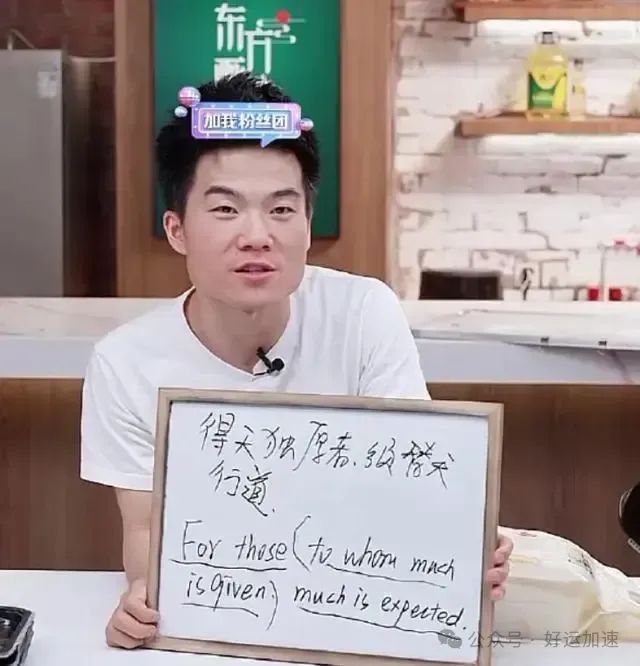 东方
加我粉丝团
得天独厚者、替天
行道.
For those (to whom much
is given,) much is expected.
公众号 · 好运加速